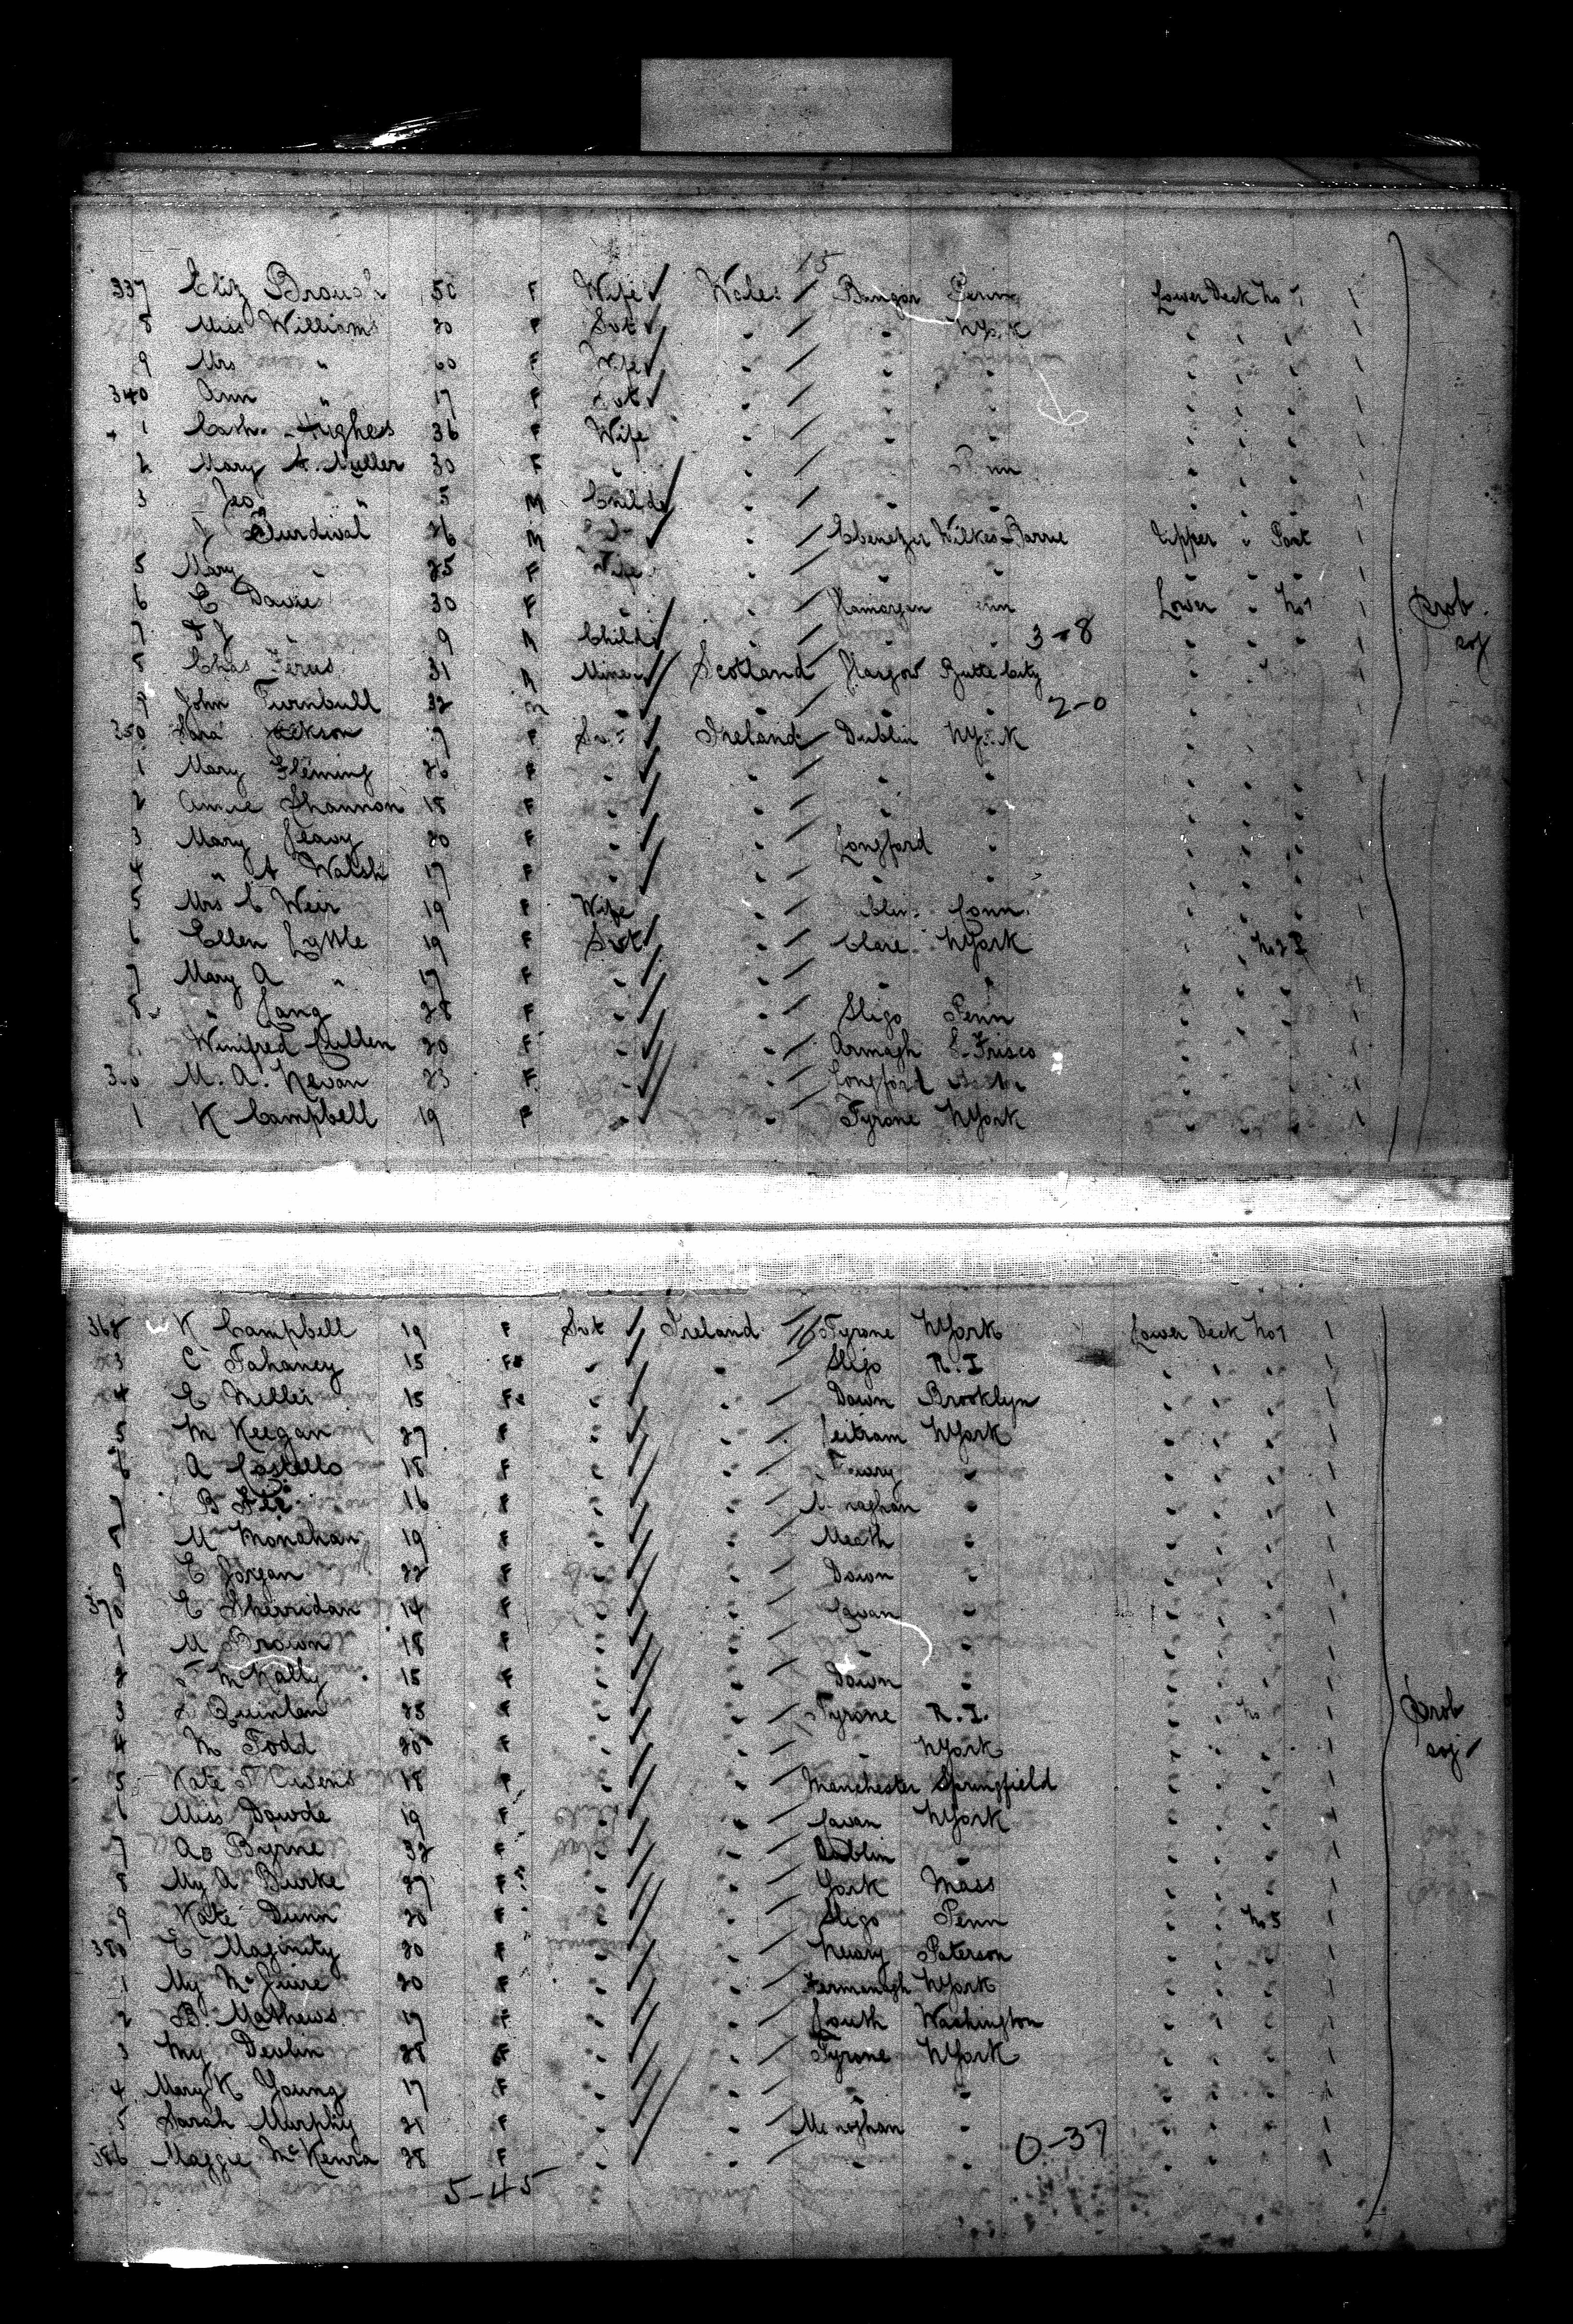 15
337 Eliz Brough 50 F Wife Wales Bangor Penn Lower Deck No 1 1
8 Miss Williams 20 F Svt " " N York " " " 1
9 Mrs " 60 F Wife " " " " " " 1
340 Ann " 17 F Svt " " " " " " 1
1 Cath. Hughes 36 F Wife " " " " " " 1
2 Mary A. Muller 30 F " " Penn " " " 1
3 Jas " 5 M Child " " " " " " 1
J 26 M " Ebenezer Wilkes-Barre Upper " Port 1
5 Mary " 25 F Wife " " " " " " 1
6 E Davies 30 F " " Lower " No 1 1
7 " 9 M Child " " " 3-8 " " " 1
8 Chas 31 M Miner Scotland Glasgow Butte City " " " 1
9 John Turnbull 32 M " " " " 2-0 " 1
350 Sara F Svt Ireland Dublin N York " " " 1
1 Mary Fleming 26 F " " " " " " " 1
2 Annie Shannon 18 F " " " " " " " 1
3 Mary Leavy 20 F " " Longford " " " " 1
4 " A Walsh 17 F " " " " " " " 1
5 Mrs C Weir 19 F Wife " Dublin Conn. " " " 1
6 Ellen Lyttle 19 F Svt " Clare N York " No 2 1
7 Mary A " 17 F " " " " " " " 1
8 " Lang 28 F " " Sligo Penn " " " 1
Winifred Cullen 20 F " " Armagh S. Frisco " " " 1
360 M. A. Kevan 23 F " " Longford " " " 1
1 K Campbell 19 F " " Tyrone N York " " " 1
Prob.
soj
368 K Campbell 19 F Svt Ireland 16 Tyrone N York Lower Deck No 1 1
3 C Fahaney 15 F " " Sligo R.I " " " 1
4 E 15 F " " Down Brooklyn " " " 1
5 M Keegan 27 F " " Leitram N York " " " 1
6 A Costello 18 F " " " " " " 1
7 B Fee 16 F " " Monaghan " " " " 1
8 M Monahan 19 F " " Meath " " " " 1
9 E Jorgan 22 F " " Down " " " " 1
370 E Sherridan 14 F " " Cavan " " " " 1
1 M Brown 18 F " " " " " " " 1
2 McNally 15 F " " Down " " " " 1
3 Quinlan 25 F " " Tyrone R.I. " No 1
4 M Todd 20 F " " " N York " " " 1
5 Kate Owens 18 F " " Manchester Springfield " " " 1
6 Miss Dowde 19 F " " Cavan N York " " " 1
7 Byrne 32 F " " Dublin " " " " 1
8 My A Burke 27 F " " York Mass " " " 1
9 Kate Dunn 20 F " " Sligo Penn " " No 5 1
380 E Maginity 20 F " " Newry Paterson " " " 1
1 My McGuire 20 F " " Fermanagh N York " " " 1
2 B. Mathews 17 F " " Louth Washington " " " 1
3 My Devlin 28 F " " Tyrone N York " " " 1
4 Mary K Young 17 F " " " " " " " 1
5 Sarah Murphy 21 F " " Monoghan " " " " 1
386 Maggie McKenna 28 F " " " " 0-37 " " " 1
5-45
Prob
soj